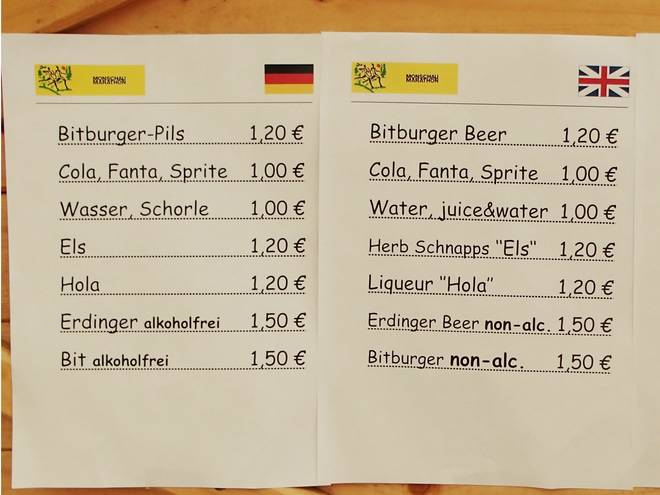 MONSCHAU
MARATHON
Bitburger-Pils 1,20 €
Cola, Fanta, Sprite 1,00 €
Wasser, Schorle 1,00 €
Els 1,20 €
Hola 1,20 €
Erdinger alkoholfrei 1,50 €
Bit alkoholfrei 1,50 €
MONSCHAU
MARATHON
Bitburger Beer 1,20 €
Cola, Fanta, Sprite 1,00 €
Water, juice&water 1,00 €
Herb Schnapps "Els" 1,20 €
Liqueur "Hola" 1,20 €
Erdinger Beer non-alc. 1,50 €
Bitburger non-alc. 1,50 €